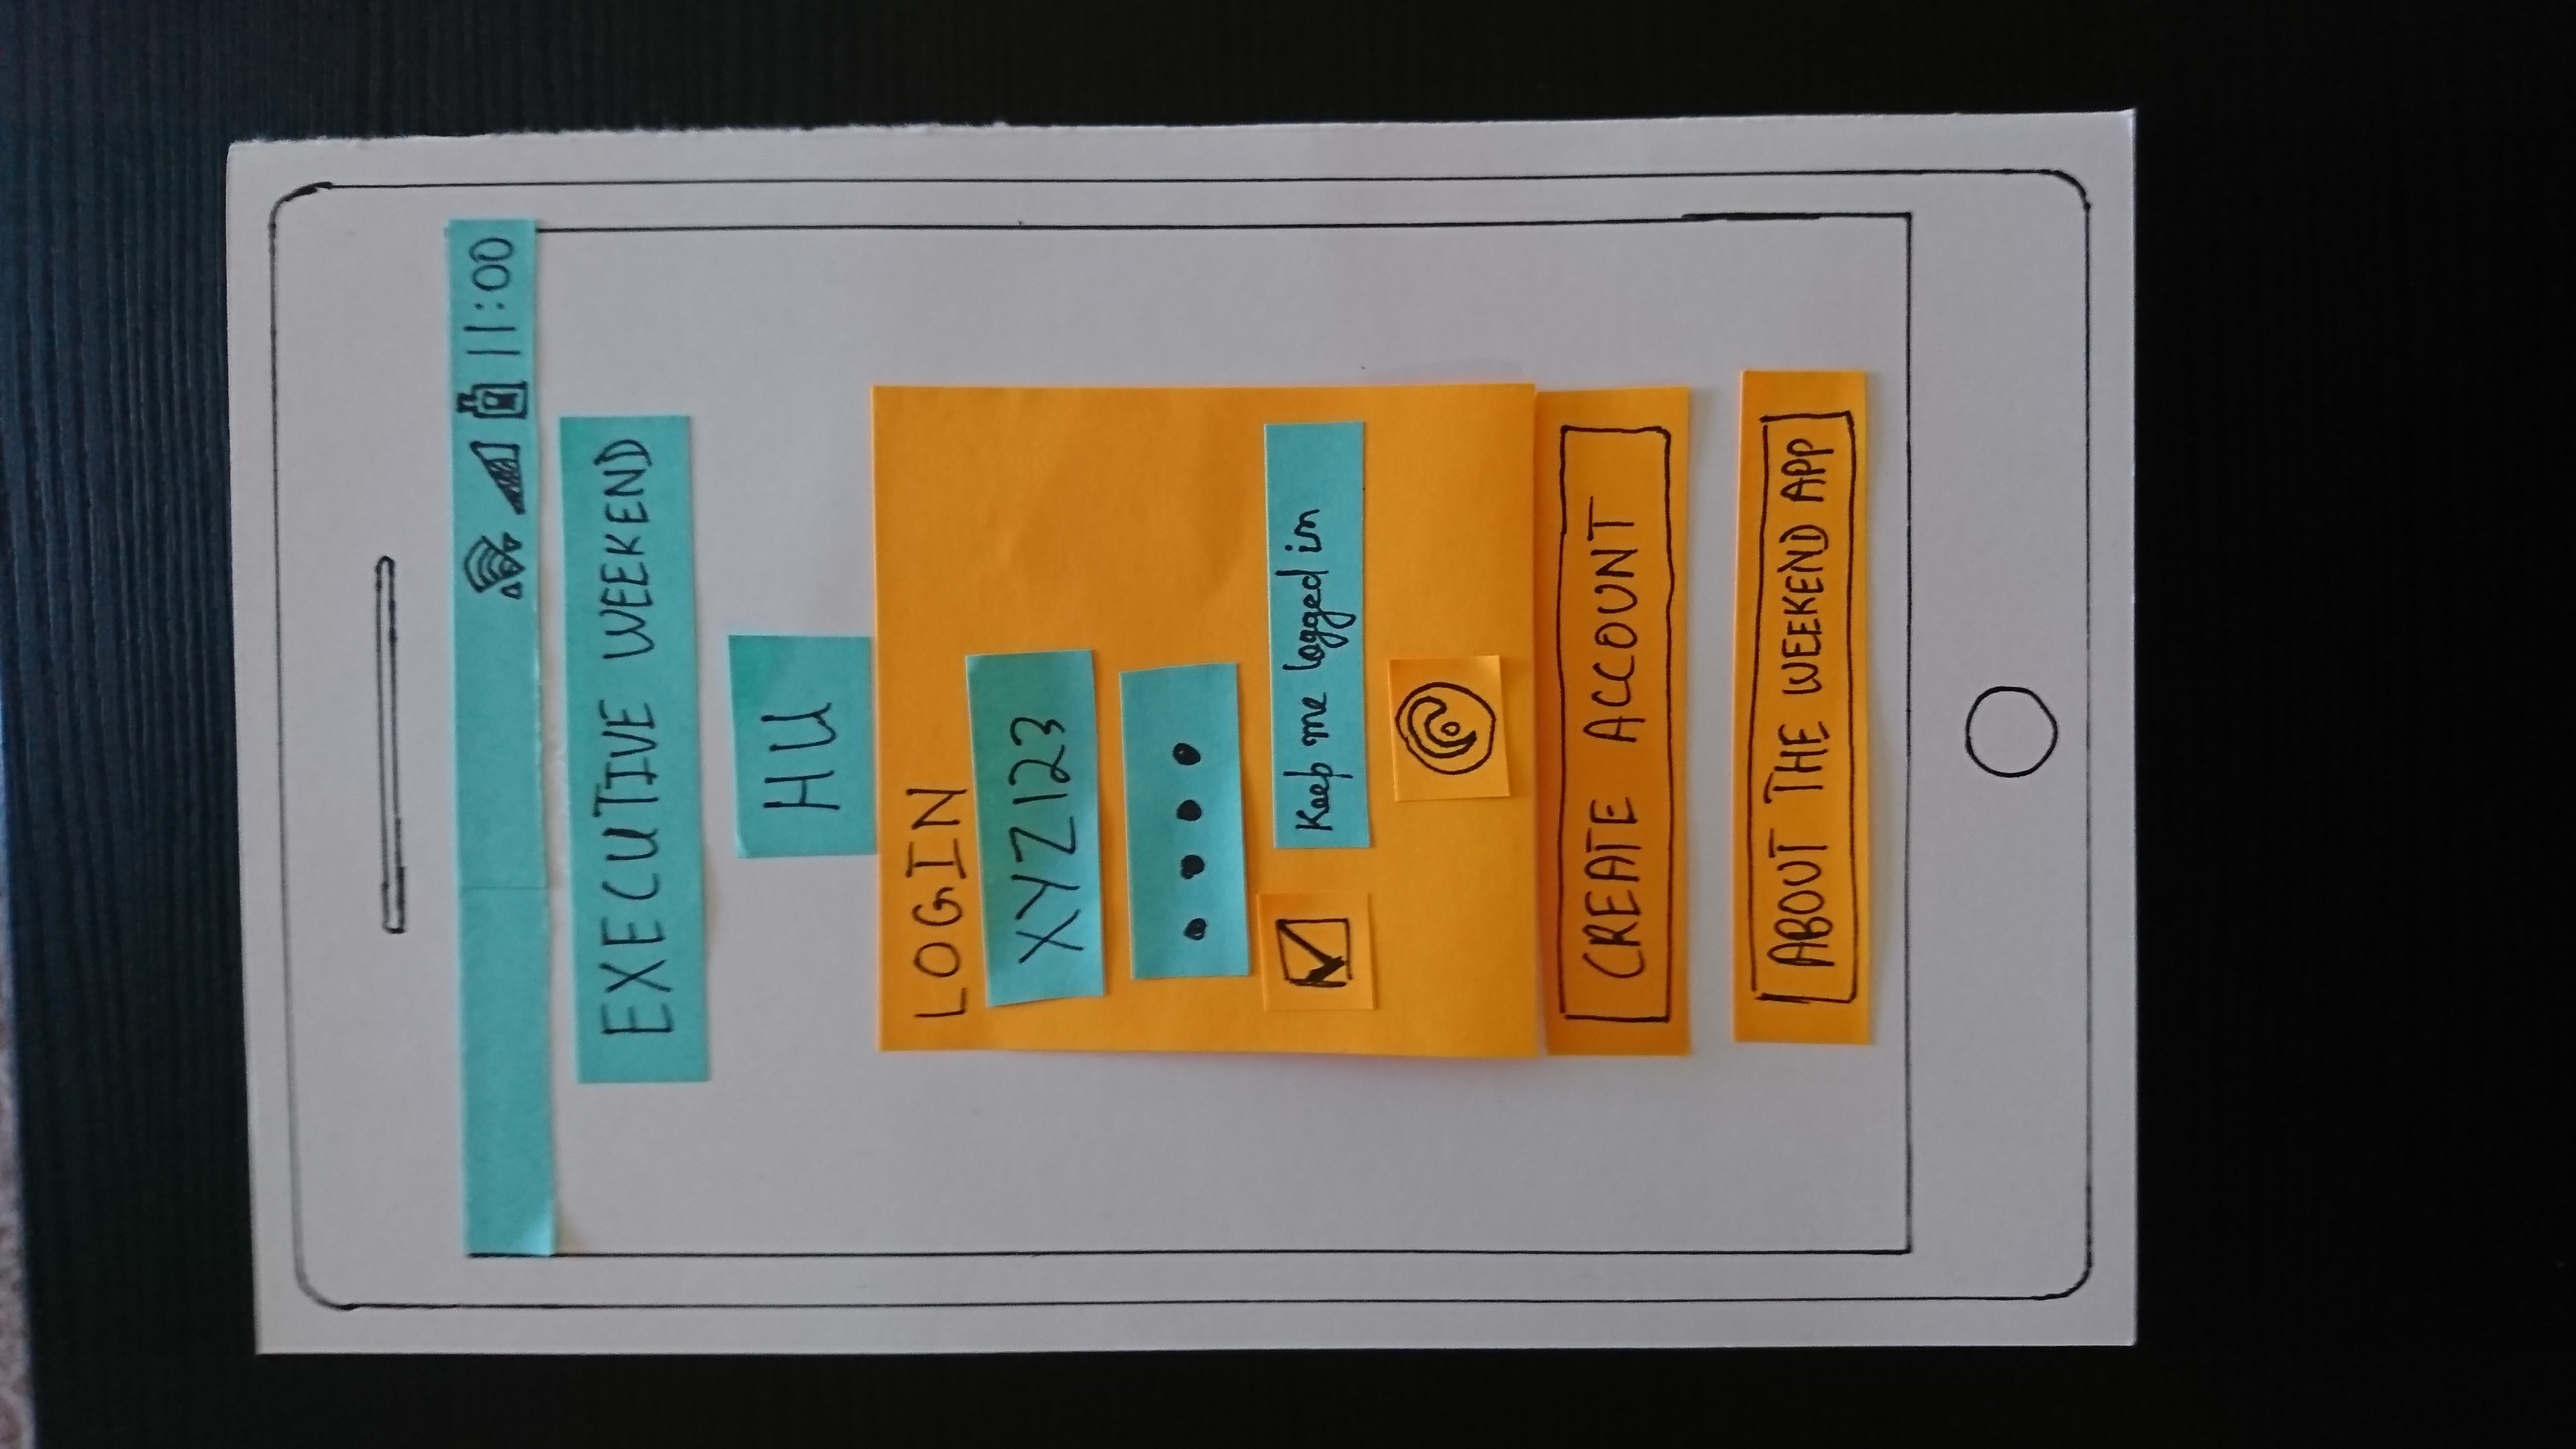 11:00
EXECUTIVE WEEKEND
HU
LOGIN
XYZ123
Keep me logged in
CREATE ACCOUNT
ABOUT THE WEEKEND APP